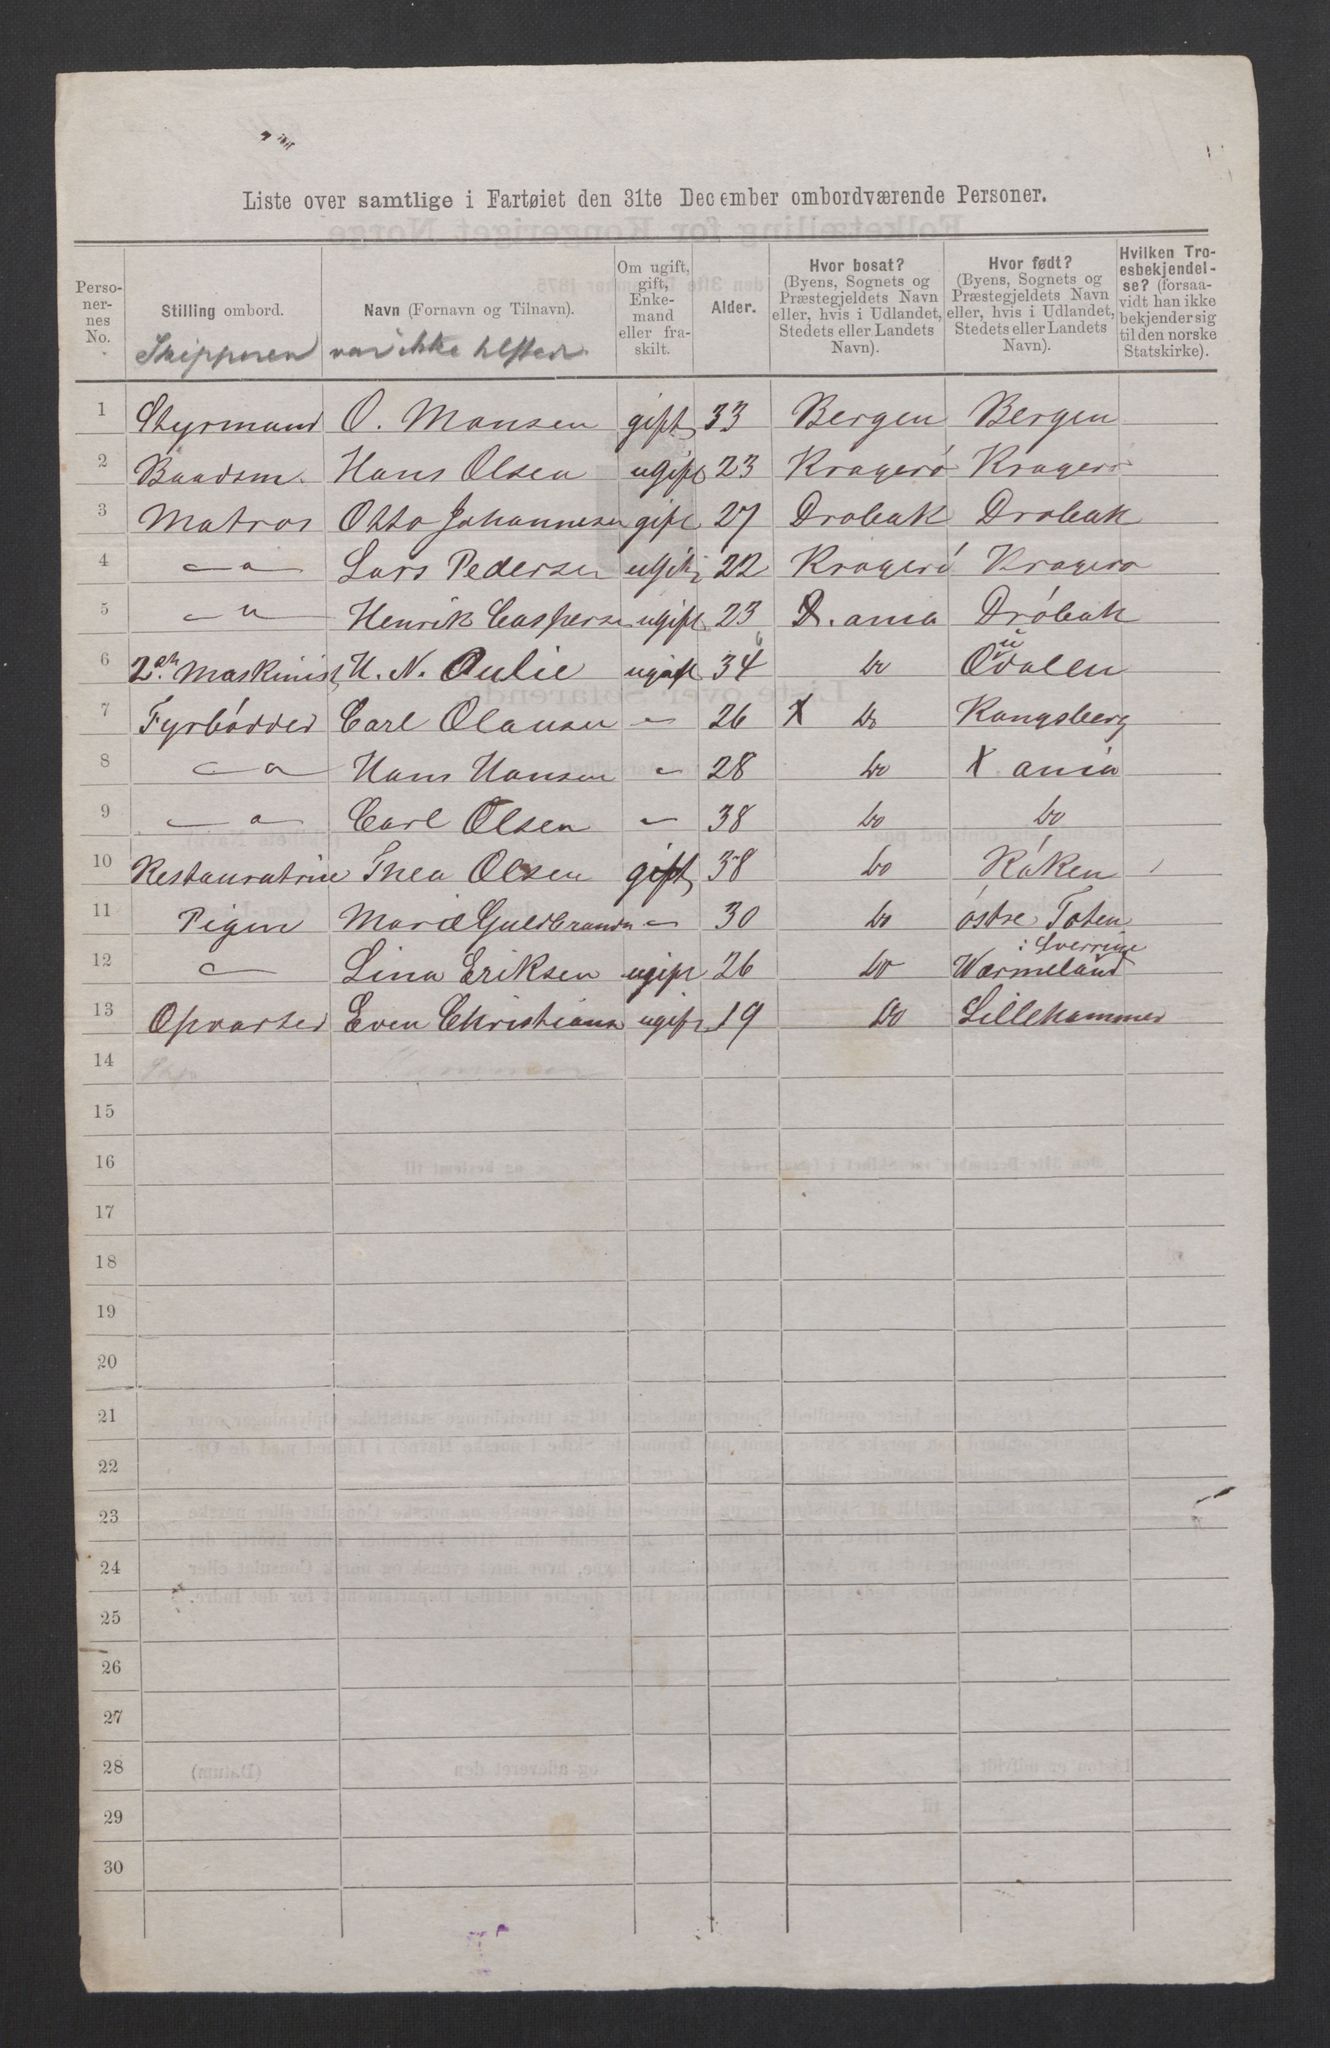 Liste over samtlige i Fartøiet den 31te December ombordværende Personer.
Personernes No. | Stilling ombord. | Navn (Fornavn og Tilnavn). | Om ugift, gift, Enkemand eller fraskilt. | Alder. | Hvor bosat? (Byens, Sognets og Præstegjeldets Navn eller, hvis i Udlandet, Stedets eller Landets Navn). | Hvor født? (Byens, Sognets og Præstegjeldets Navn eller, hvis i Udlandet, Stedets eller Landets Navn). | Hvilken Troesbekjendelse? (forsaavidt han ikke bekjender sig til den norske Statskirke).
Skipperen var ikke tilstede
1 Styrmand O. Monsen gift 33 Bergen Bergen
2 Baadsm. Hans Olsen ugift 23 Kragerø Kragerø
3 Matros Otto Johannesen gift 27 Drobak Drobak
4 — " — Lars Pedersen ugift 22 Kragerö Kragerø
5 — " — Henrik Caspersen ugift 23 X.ania Dröbak
6 2den Maskinist H. N. Aulie ugift 34 do Odalen
7 Fyrbödder Carl Olausen — " — 26 X do Kongsberg
8 — " — Hans Hansen — " — 28 do X ania
9 — " — Carl Olsen — " — 38 do do
10 Restauratrise Thea Olsen gift 38 do Röken
11 Pigen Marie Guldbrands — " — 30 do östre Toten
12 — " — Lina Eriksen ugift 26 do Wærmeland i Sverrige
13 Opvarter Even Christians ugift 19 do Lillehammer
14
15
16
17
18
19
20
21
22
23
24
25
26
27
28
29
30